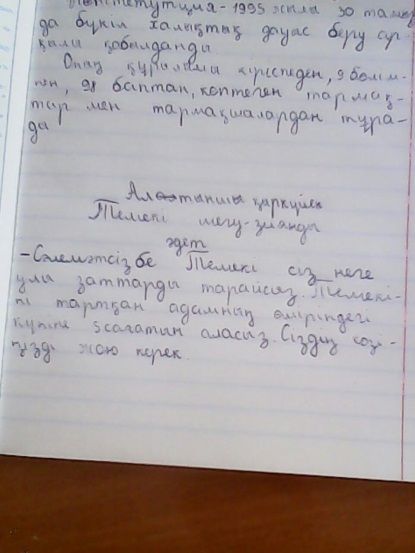 Конститутция-1995 жылы 30 тамыз
да бүкіл халықтық дауас беру ар-
қылы қабылданды
Оның құрылымы кіріспеден, 9 бөлім-
нен, 98 баптан, көптеген тармақ-
тар мен тармақшалардан тұра-
ды
Алтыншы қыркүйек
Темекі шегу-зиянды
әдет
-Сәлеметсіз бе Темекі сіз неге
улы заттарды тарайсыз. Темекі-
ні тартқан адамның өміріндегі
күніне 5 сағатын аласыз. Сіздің көзі-
ңізді жою керек.